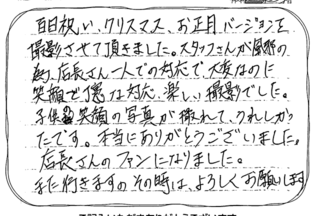 百日祝い、クリスマス、お正月バージョンを
撮影させて頂きました。スタッフさんが風邪の
為、店長さん一人での対応で大変なのに
笑顔で丁寧な対応、楽しい撮影でした。
子供の笑顔の写真が撮れて、うれしかっ
たです。本当にありがとうございました。
店長さんのファンになりました。
また行きますのその時は、よろしくお願いします